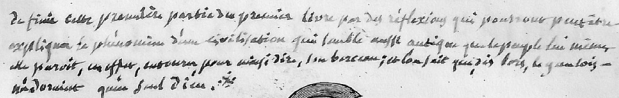 Je finis cette première partie du premier livre par des réflexions qui pourront peut être
expliquer le phénomène d'une civilisation qui semble aussi antique que le peuple lui même
elle paroit, en effet, entourer pour ainsi dire, son berceau; et l'on sait que, dès lors, le gaulois
n'adoroient qu'un seul Dieu.